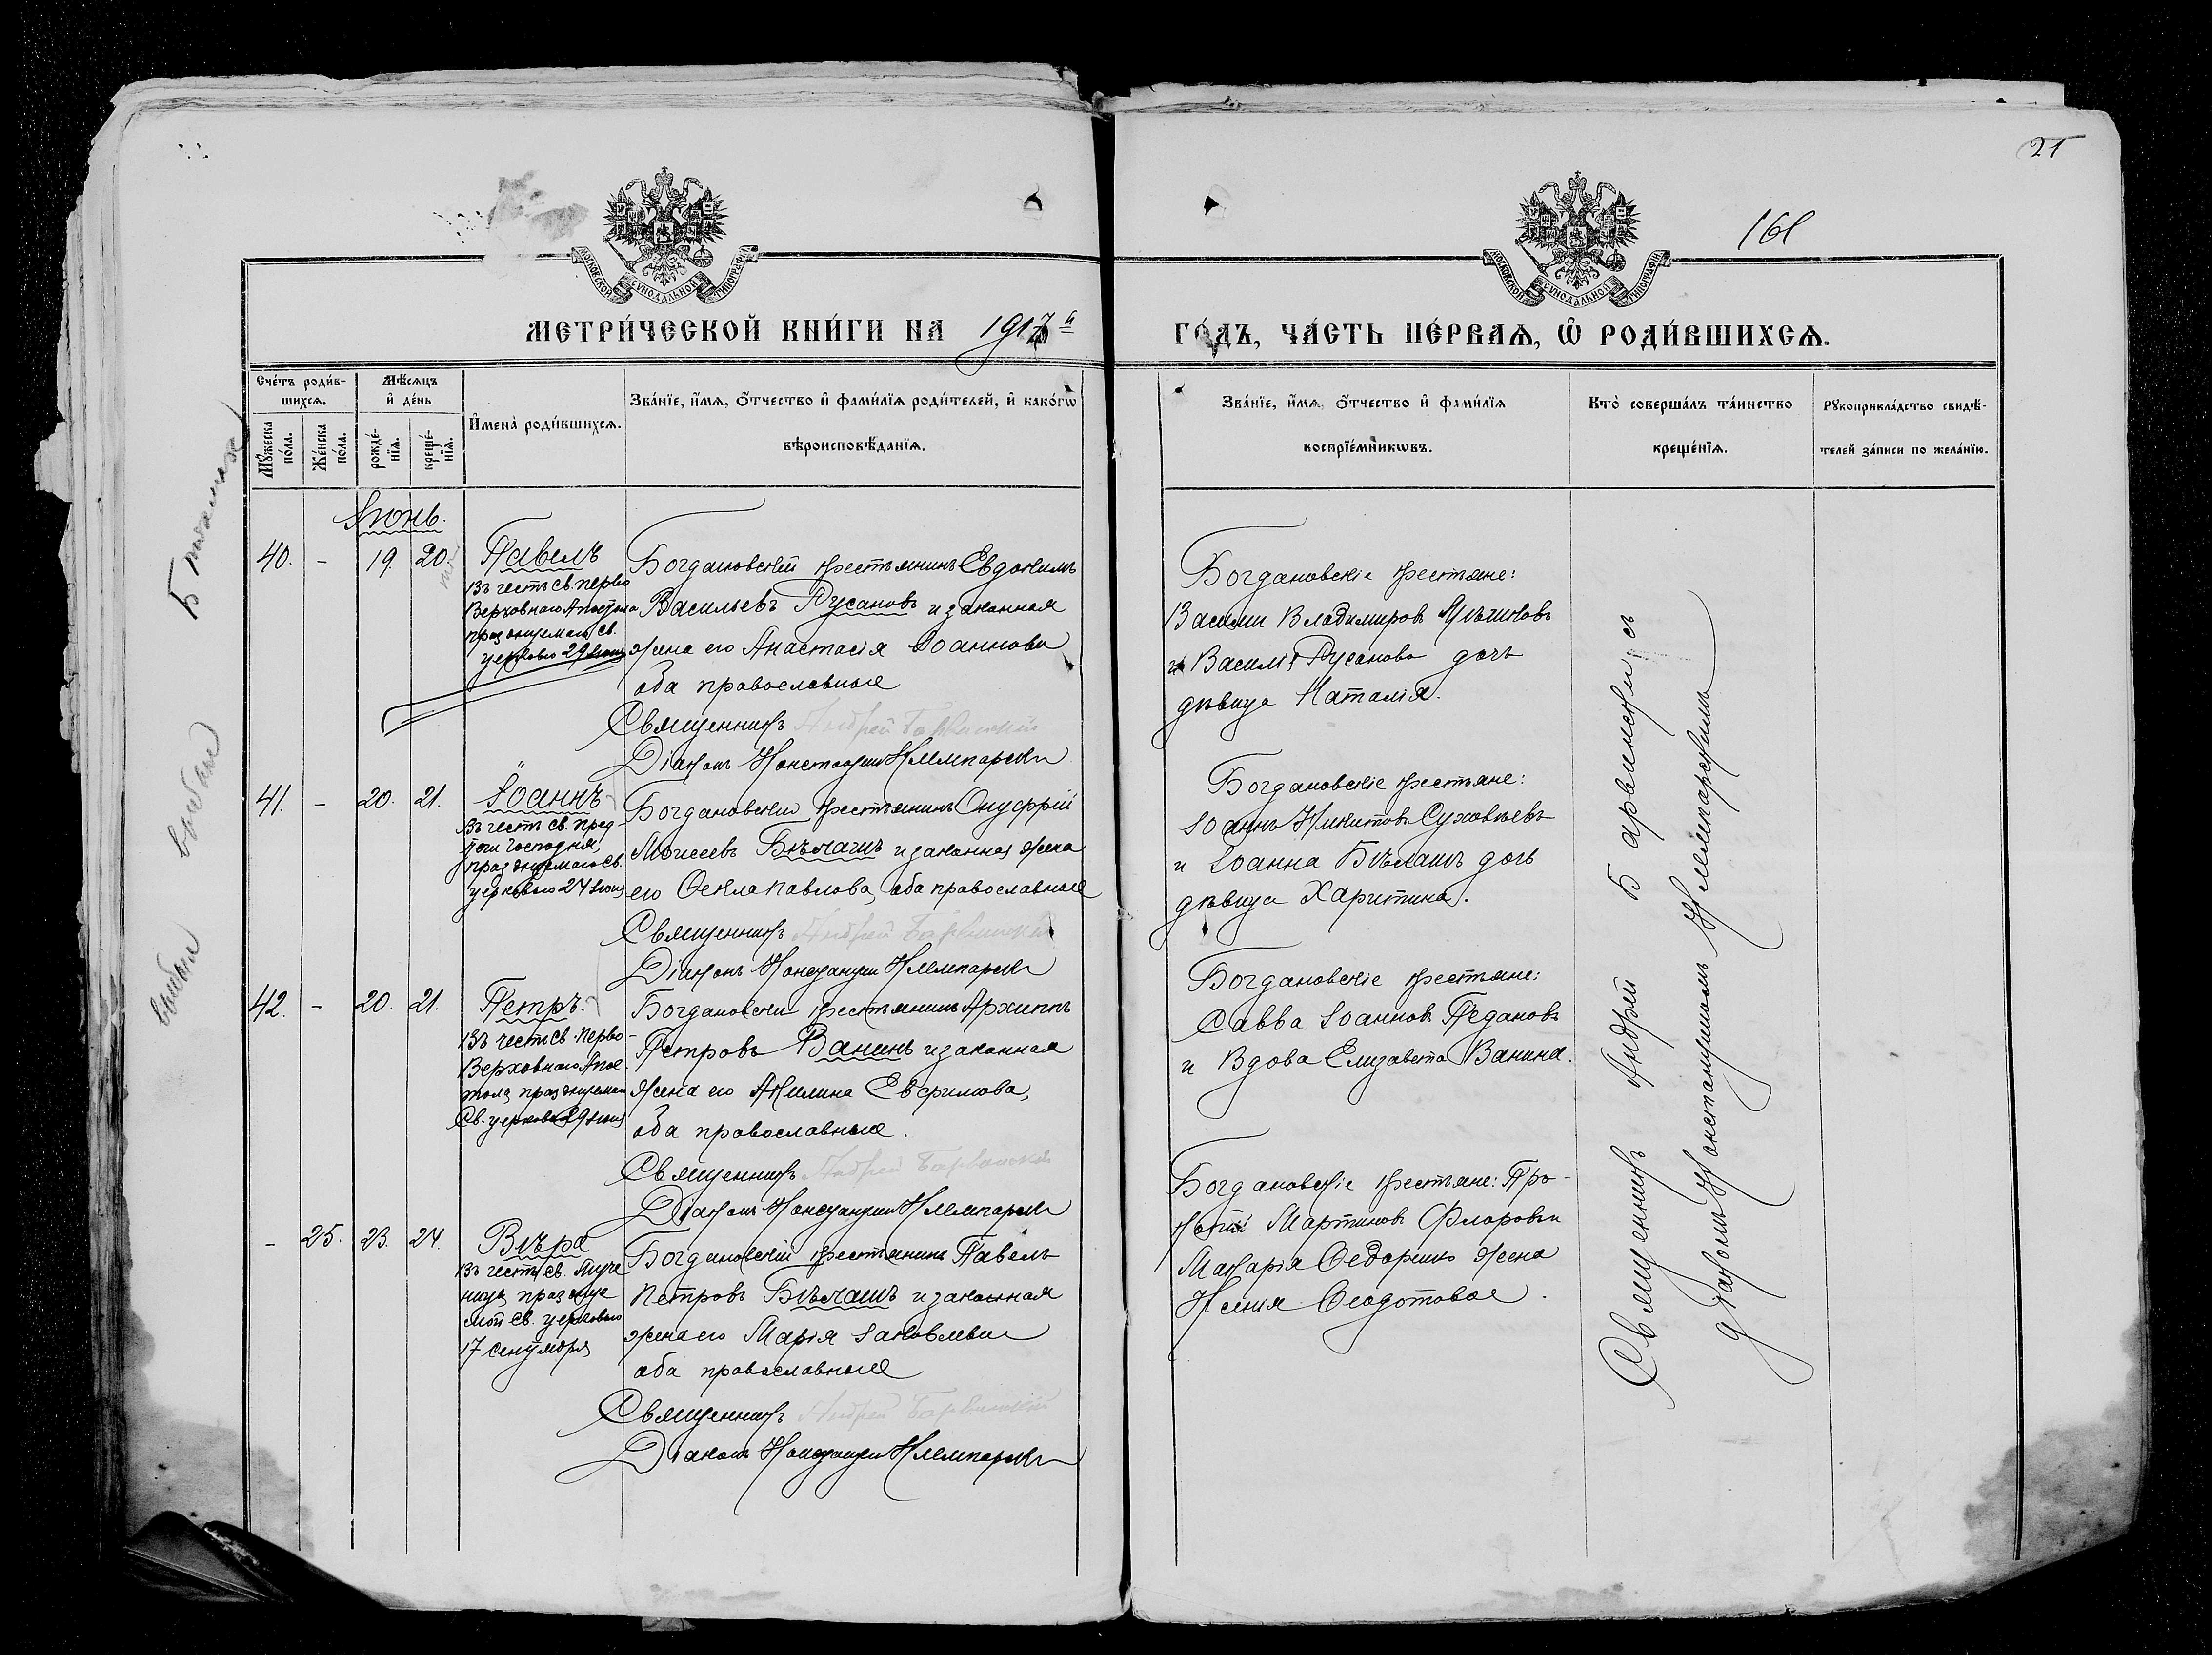 21
161
МОСКОВСКОЙ СѴНОДАЛЬНОЙ ТИПОГРАФІИ
МОСКОВСКОЙ СѴНОДАЛЬНОЙ ТИПОГРАФІИ
МЕТРИ́ЧЕСКОЙ КНИ́ГИ НА 1917 й
ГО́ДЪ, ЧА́СТЬ ПЕ́РВАѦ, Ѡ҆ РОДИ́ВШИХСѦ.
Сче́тъ роди́в-
шихсѧ.
Мꙋ́жеска по́ла.
Же́нска по́ла.
Мѣ́сѧцъ
и҆ де́нь
рожде́-
нїѧ.
креще́-
нїѧ.
И҆мена̀ роди́вшихсѧ.
Зва́нїе, и҆́мѧ, ѻ҆́тчество и҆ фами́лїѧ роди́телей, и҆ како́гѡ
вѣроисповѣ́данїѧ.
Зва́нїе, и҆́мѧ, ѻ҆́тчество и҆ фами́лїѧ
воспрїе́мникѡвъ.
Кто̀ соверша́лъ та́инство
креще́нїѧ.
Рꙋкоприкла́дство свидѣ́-
телей за́писи по жела́нїю.
Іюнь.
40. - 19. 20.
Павелъ
Въ честь св. перво
Верховнаго Апостола
празднуемаго св.
церковью 29 Іюня
Богдановскій крестьянинъ Евдокимъ
Васильевъ Русановъ и законная
жена его Анастасія Іоаннова
оба православные
Священникъ Андрей Барвинскій
Діаконъ Константинъ Клемпарскій
Богдановскіе крестьяне:
Василій Владимировъ
и Василія Русанова дочь
дѣвица Наталія.
41. - 20. 21.
Іоаннъ
Въ честь св. Пред-
течи Господня,
празднуемаго св.
церковью 24 Іюня
Богдановскій крестьянинъ Онуфрій
Моисеевъ Бѣлашъ и законная жена
его Ѳекла Павлова, оба православные
Священникъ Андрей Барвинскій
Діаконъ Константинъ Клемпарскій
Богдановскіе крестьяне:
Іоаннъ Никитовъ Суховѣевъ
и Іоанна Бѣлашъ дочь
дѣвица Харитина.
42. - 20. 21.
Петръ.
Въ честь св. Перво-
Верховнаго Апос-
тола, празднуемаго
Св. церковью 29 Іюня
Богдановскій крестьянинъ Архиппъ
Петровъ Ванинъ и законная
жена его Акилина Евфимова,
оба православные.
Священникъ Андрей Барвинскій
Діаконъ Константинъ Клемпарскій
Богдановскіе крестьяне:
Савва Іоанновъ Педановъ
и Вдова Елизавета Ванина.
- 25. 23. 24.
Вѣра
Въ честь св. Муче
ницы, празднуе
мой св. церковью
17 Сентября
Богдановскій крестьянинъ Павелъ
Петровъ Бѣлашъ и законная
жена его Марія Іаковлева
оба православные
Священникъ Андрей Барвинскій
Діаконъ Константинъ Клемпарскій
Богдановскіе крестьяне: Про-
копій Мартиновъ Флоровъ и
Макарія Ѳедоренко жена
Ксенія Ѳеодотова.
Священникъ Андрей Барвинскій съ
діакономъ Константиномъ Клемпарскимъ